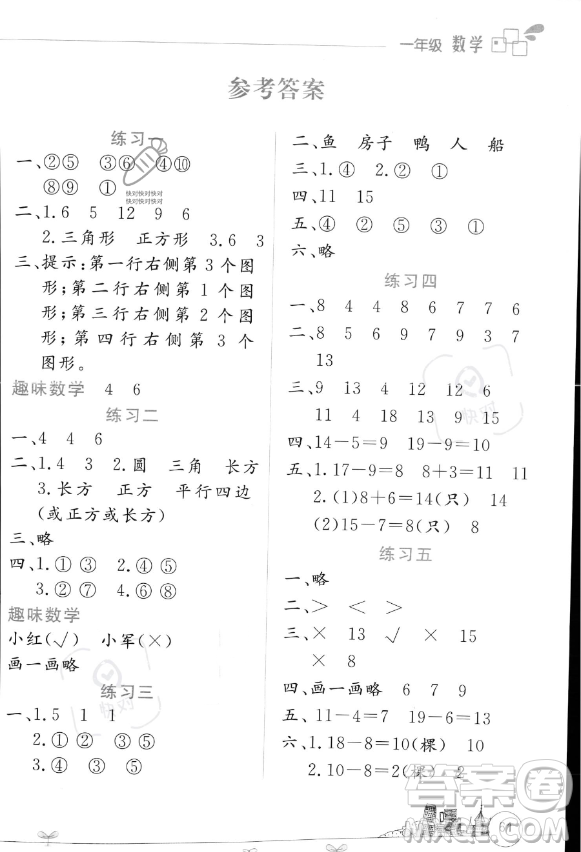 一年级 数学
参考答案
练习一
一、②⑤ ③⑥ ④⑩
⑧⑨ ①
快对快对快对
快对快对快对
二、1.6 5 12 9 6
2.三角形 正方形 3.6 3
三、提示:第一行右侧第3个图
形;第二行右侧第1个图
形;第三行右侧第2个图
形;第四行右侧第3个
图形。
趣味数学 4 6
练习二
一、4 4 6
二、1.4 3 2.圆 三角 长方
3.长方 正方 平行四边
(或正方或长方)
三、略
四、1.①③ 2.④⑤
3.②⑦ 4.①⑤
趣味数学
小红(√) 小军(×)
画一画略
练习三
一、1.5 1 1
2.①③ ②④⑤
3.④ ②③ ①⑤
二、鱼 房子 鸭 人 船
三、1.④ 2.②①
四、11 15
五、④ ② ③ ①
六、略
练习四
一、8 4 8 6 7 7 6
二、8 5 8 6 9 7 12
13
三、9 13 4 12 12 6
11 4 18 9 16 8
四、14-5=9 19-9=10
五、1.17-9=8 8+3=11
2.(1)8+6=14(只) 14
(2)15-7=8(只) 8
练习五
一、略
二、> < >
三、× 13 √ × 15
× 8
四、画一画略 6 7 9
五、11-4=7 19-6=13
六、1.18-8=10(棵) 10
2.10-8=2(棵) 2
快对
快对
答案圈